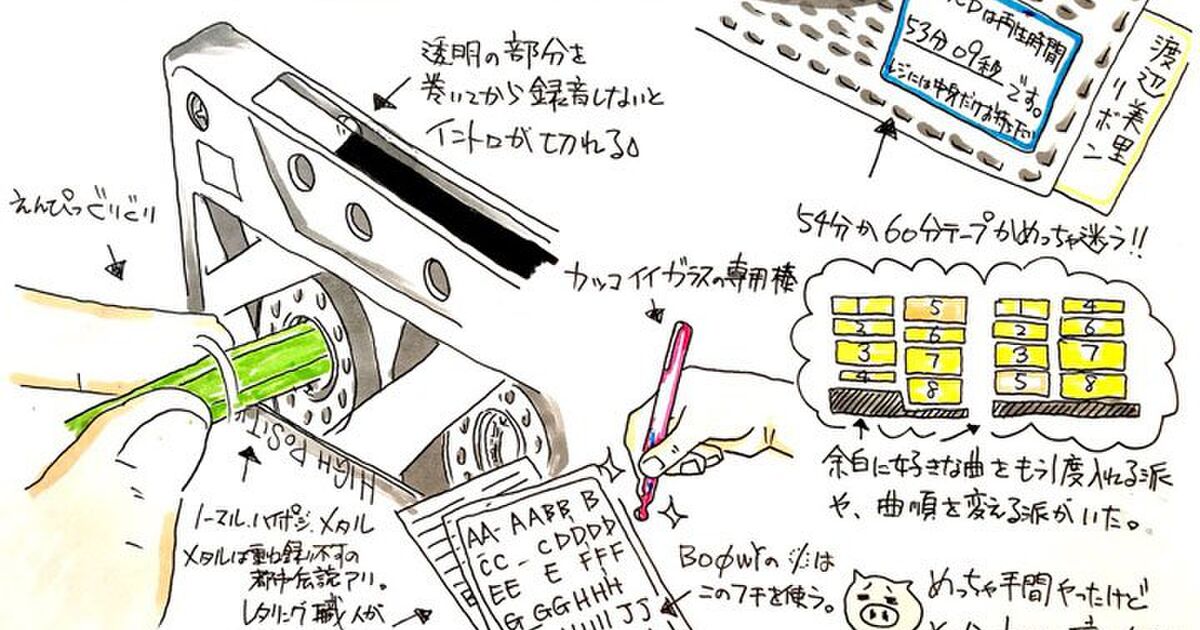 透明の部分を
巻いてから録音しないと
イントロが切れる。
CDは再生時間
53分09秒です。
レジには中身だけお持ち下さい
渡辺美里
リボン
えんぴつぐりぐり
54分か60分テープかめっちゃ迷う!!
カッコイイガラスの専用棒
1 5 1 4
2 6 2 6
3 7 3 7
4 8 5 8
余白に好きな曲をもう1度入れる派
や、曲順を変える派がいた。
HIGH POSIT
ノーマル、ハイポジ、メタル
メタルは重ね録り不可の
都市伝説アリ。
レタリング職人が
AA-AABB B
CC - CDDDD
EE E FFF
G GGHHH
JJ
BOØWYのØは
このフチを使う。
めっちゃ手間やったけど